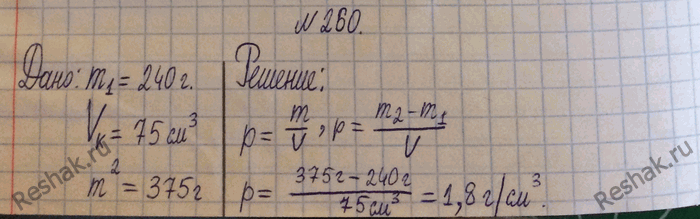 № 260.
Дано: m₁ = 240 г.
Vₖ = 75 см³
m² = 375 г
Решение:
p = m/V, p = (m₂ − m₁)/V
p = (375 г − 240 г)/75 см³ = 1,8 г/см³.
Reshak.ru
Reshak.ru